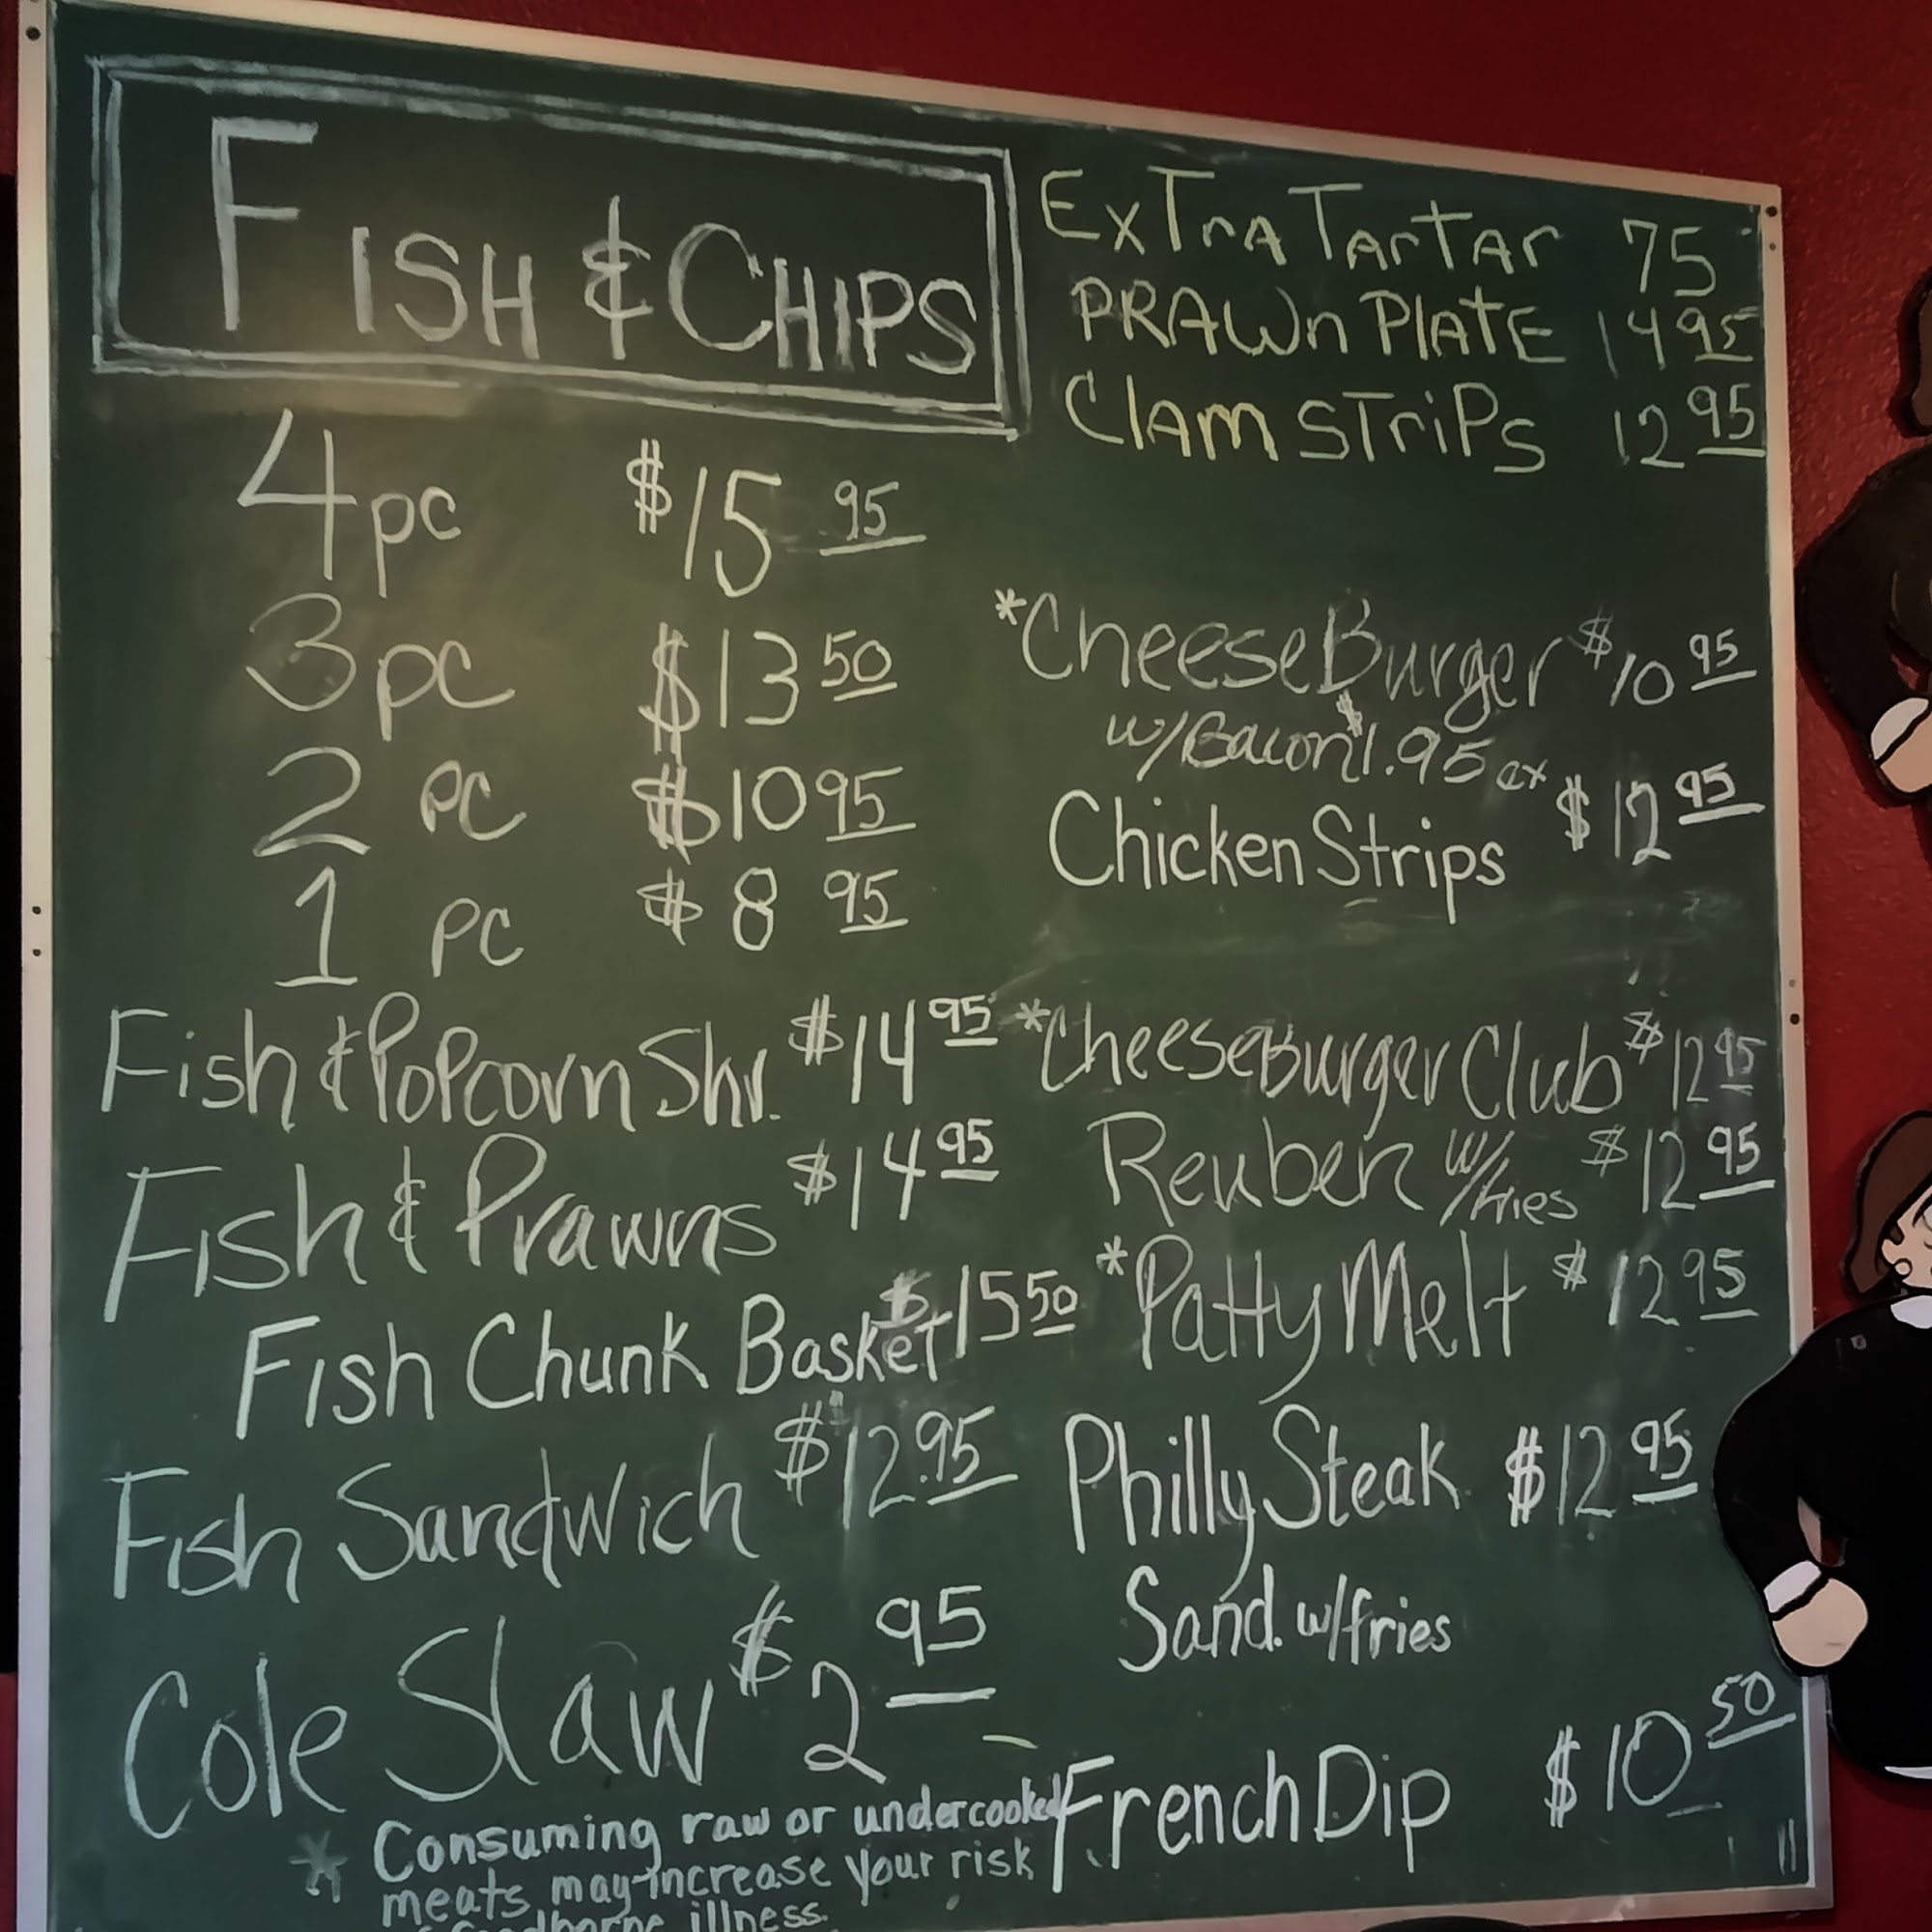 FISH & CHIPS
4 pc $15 95
3 pc $13 50
2 pc $10 95
1 pc $8 95
Fish & Popcorn Shr. $14 95
Fish & Prawns $14 95
Fish Chunk Basket $15 50
Fish Sandwich $12.95
Cole Slaw $2 95
* Consuming raw or undercooked
meats may increase your risk
of foodborne illness.
ExTrA TArtAr 75
PRAWn PlAtE 14 95
ClAm STriPs 12 95
*CheeseBurger $10 95
w/Bacon $1.95 ex
Chicken Strips $12 95
*CheeseBurger Club $12 95
Reuben w/fries $12 95
*Patty Melt $12 95
Philly Steak $12 95
Sand. w/fries
French Dip $10 50